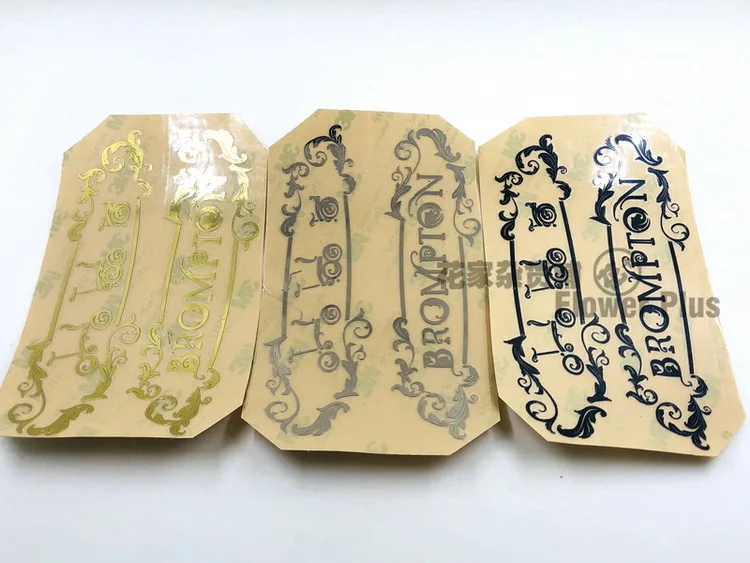 BROMPTON
BROMPTON
BROMPTON
花家杂货铺
Flower Plus